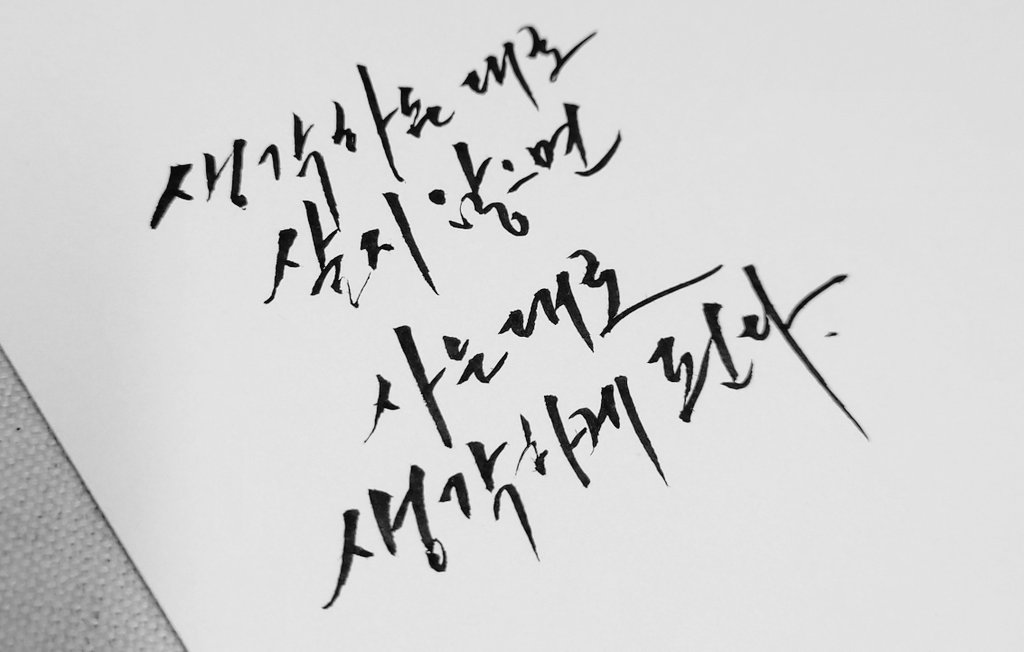 생각하는 대로
살지 않으면
사는 대로
생각하게 된다.